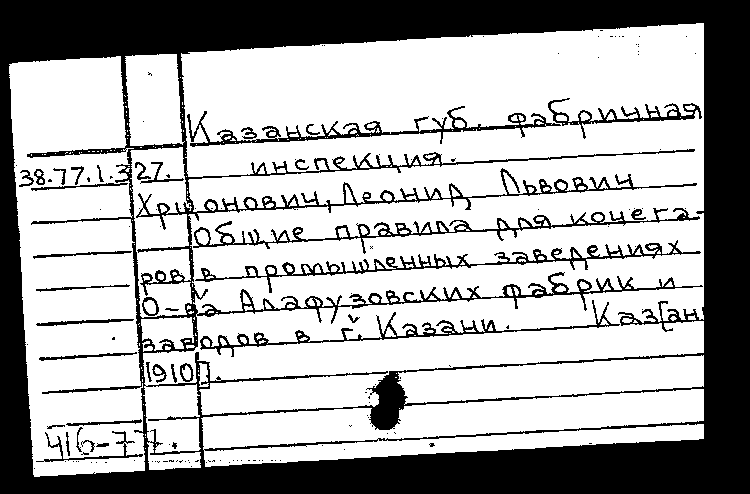 Казанская губ. фабричная
38.77.1.327. инспекция.
Леонид Львович
Общие правила для кочега-
ров в промышленных заведениях
О-ва Алафузовских фабрик и
заводов в г. Казани. Каз[ан
1910].
416-77.